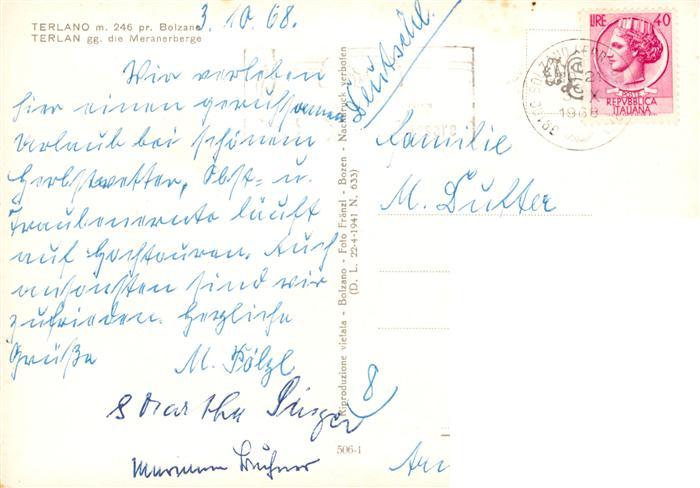 TERLANO m. 246 pr. Bolzano
TERLAN gg. die Meranerberge
3.10.68.
Wir verleben
hier einen geruhsamen
Urlaub bei schönem
Herbstwetter, Obst- u.
Traubenernte läuft
auf Hochtouren. Auch
ansonsten sind wir
zufrieden. Herzliche
Grüße M. Pölzl
Martha
506-1
Riproduzione vietata - Bolzano - Foto Fränzl - Bozen - Nachdruck verboten
(D. L. 22-4-1941 N. 633)
Deutschl.
LIRE 40
POSTE
REPVBBLICA
ITALIANA
BOLZANO
1968
Familie
M. Dutter
8